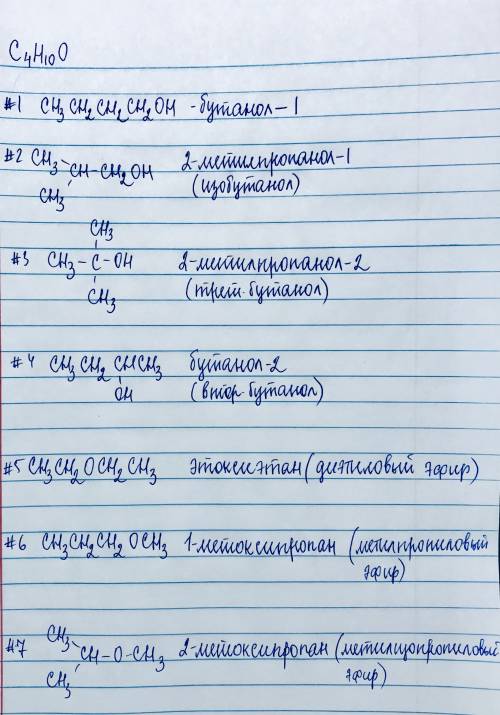 C4H10O
#1 CH3CH2CH2CH2OH - бутанол-1
#2 CH3
CH-CH2OH 2-метилпропанол-1
CH3 (изобутанол)
CH3
#3 CH3-C-OH 2-метилпропанол-2
CH3 (трет. бутанол)
#4 CH3CH2CHCH3 бутанол-2
OH (втор. бутанол)
#5 CH3CH2OCH2CH3 этоксиэтан (диэтиловый эфир)
#6 CH3CH2CH2OCH3 1-метоксипропан (метилпропиловый
эфир)
#7 CH3
CH-O-CH3 2-метоксипропан (метилизопропиловый
CH3 эфир)